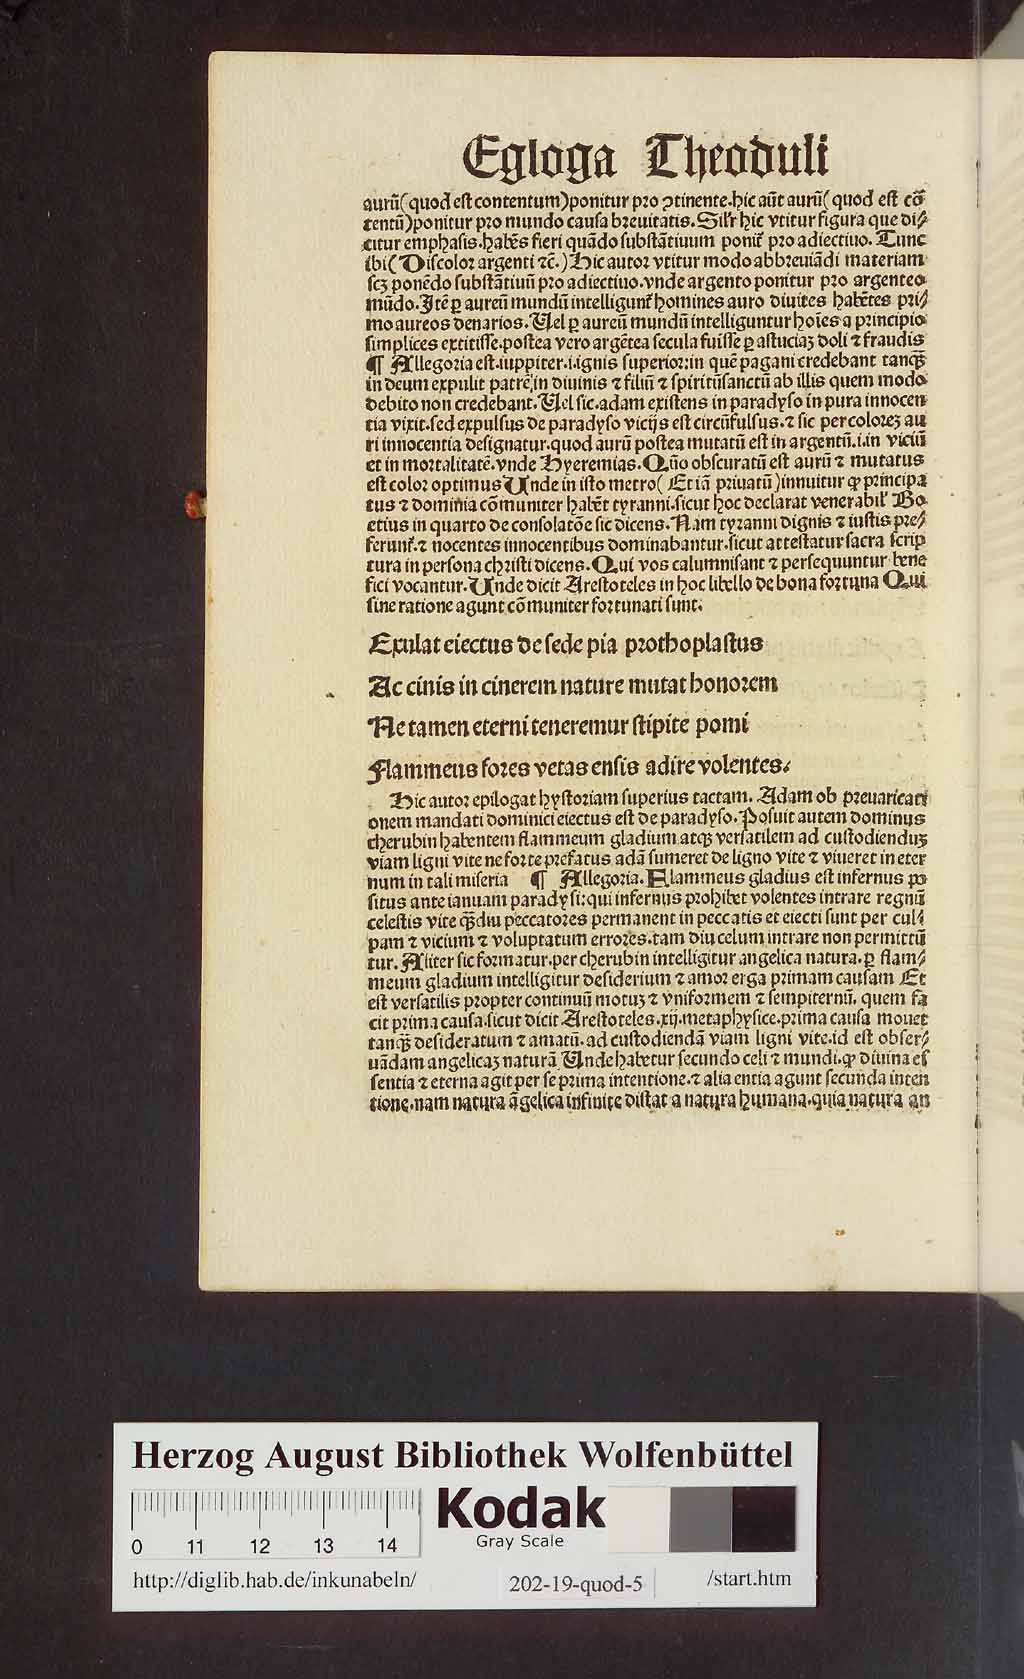 Egloga Theoduli
aurū(quod est contentum)ponitur pro ꝯtinente.hic aūt aurū(quod est cō
tentū)ponitur pro mundo causa breuitatis.Silr̄ hic vtitur figura que di⸗
citur emphasis.habēs fieri quādo substātiuum ponit᷑ pro adiectiuo. Tunc
ibi(Discolor argenti ⁊c̄.)Hic autor vtitur modo abbreuiādi materiam
scꝫ ponēdo substātiuū pro adiectiuo.vnde argento ponitur pro argenteo
mūdo.Itē ꝑ aureū mundū intelligunt᷑ homines auro diuites habētes pri⸗
mo aureos denarios.Uel ꝑ aureū mundū intelliguntur hoīes a principio
simplices extitisse.postea vero argētea secula fuisse ꝑ astuciaꝫ doli ⁊ fraudis
¶ Allegoria est.iuppiter.i.ignis superior:in quē pagani credebant tanqꝫ̄
in deum expulit patrē in diuinis ⁊ filiū ⁊ spiritūsanctū ab illis quem modo
debito non credebant.Uel sic.adam existens in paradyso in pura innocen
tia vixit.sed expulsus de paradyso vicijs est circūfulsus.⁊ sic per coloreꝫ au
ri innocentia designatur.quod aurū postea mutatū est in argentū.i.in viciū
et in mortalitatē.vnde Hyeremias.Quō obscuratū est aurū ⁊ mutatus
est color optimus Unde in isto metro( Et iā priuatū)innuitur ꝙ principa
tus ⁊ dominia cōmuniter habēt tyranni.sicut hoc declarat venerabil᷑ Bo
etius in quarto de consolatōe sic dicens.Nam tyranni dignis ⁊ iustis pre⸗
ferunt᷑.⁊ nocentes innocentibus dominabantur.sicut attestatur sacra scrip
tura in persona christi dicens.Qui vos calumnisant ⁊ persequuntur bene
fici vocantur.Unde dicit Arestoteles in hoc libello de bona fortuna Qui
sine ratione agunt cōmuniter fortunati sunt.
Exulat eiectus de sede pia prothoplastus
Ac cinis in cinerem nature mutat honorem
Ne tamen eterni teneremur stipite pomi
Flammeus fores vetas ensis adire volentes.
Hic autor epilogat hystoriam superius tactam. Adam ob preuaricati
onem mandati dominici eiectus est de paradyso.Posuit autem dominus
cherubin habentem flammeum gladium atqꝫ versatilem ad custodienduꝫ
viam ligni vite ne forte prefatus adā sumeret de ligno vite ⁊ viueret in eter
num in tali miseria ¶ Allegoria.Flammeus gladius est infernus po
situs ante ianuam paradysi:qui infernus prohibet volentes intrare regnū
celestis vite qꝫ̄diu peccatores permanent in peccatis et eiecti sunt per cul⸗
pam ⁊ vicium ⁊ voluptatum errores.tam diu celum intrare non permittū
tur.Aliter sic formatur.per cherubin intelligitur angelica natura.ꝑ flam⸗
meum gladium intelligitur desiderium ⁊ amor erga primam causam Et
est versatilis propter continuū motuꝫ ⁊ vniformem ⁊ sempiternū. quem fa
cit prima causa.sicut dicit Arestoteles.xij.metaphysice.prima causa mouet
tanqꝫ̄ desideratum ⁊ amatū.ad custodiendā viam ligni vite.id est obser⸗
uādam angelicaꝫ naturā Unde habetur secundo celi ⁊ mundi.ꝙ diuina es
sentia ⁊ eterna agit per se prima intentione.⁊ alia entia agunt secunda inten
tione.nam natura āgelica infinite distat a natura humana.quia natura an
Herzog August Bibliothek Wolfenbüttel
0 11 12 13 14
Kodak
Gray Scale
http://diglib.hab.de/inkunabeln/ 202-19-quod-5 /start.htm